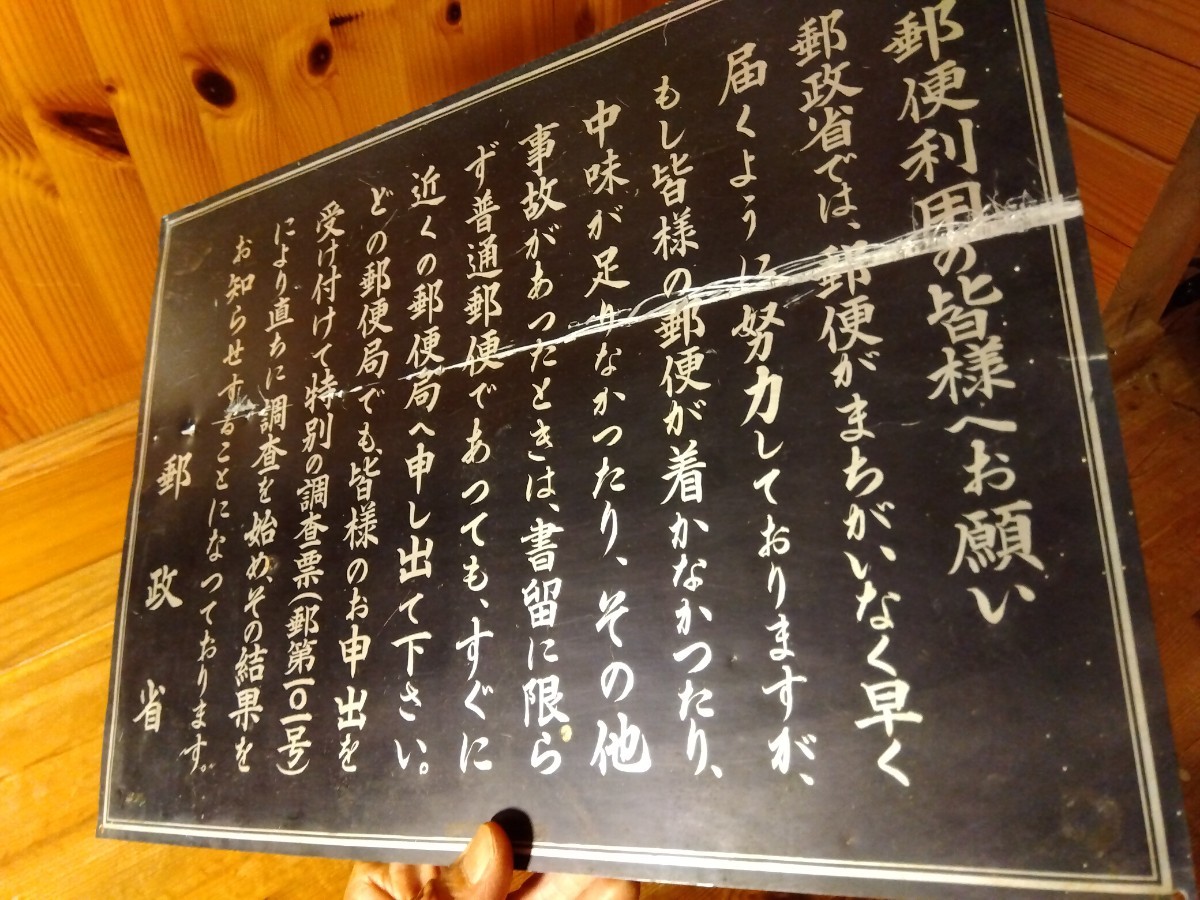 郵便利用の皆様へお願い
郵政省では、郵便がまちがいなく早く
届くように努力しておりますが、
もし皆様の郵便が着かなかつたり、
中味が足りなかつたり、その他
事故があつたときは、書留に限ら
ず普通郵便であつても、すぐに
近くの郵便局へ申し出て下さい。
どの郵便局でも、皆様のお申出を
受け付けて特別の調査票(郵第一〇一号)
により直ちに調査を始め、その結果を
お知らせすることになつております。
郵政省